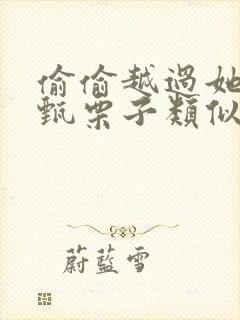 偷偷越過她
甄栗子類似
蔚藍雪